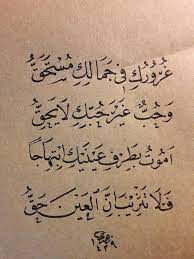 غُرُورُكِ فِي جَمَالِكِ مُسْتَحَقُّ
وَحُبٌّ غَيْرُ حُبِّكِ لَا يَحِقُّ
أَمُوتُ بِطَرْفِ عَيْنَيْكِ ابْتِهَاجًا
فَلَا تَثْرِيبَ إِنَّ الْعَيْنَ حَقُّ
١٤٣٩